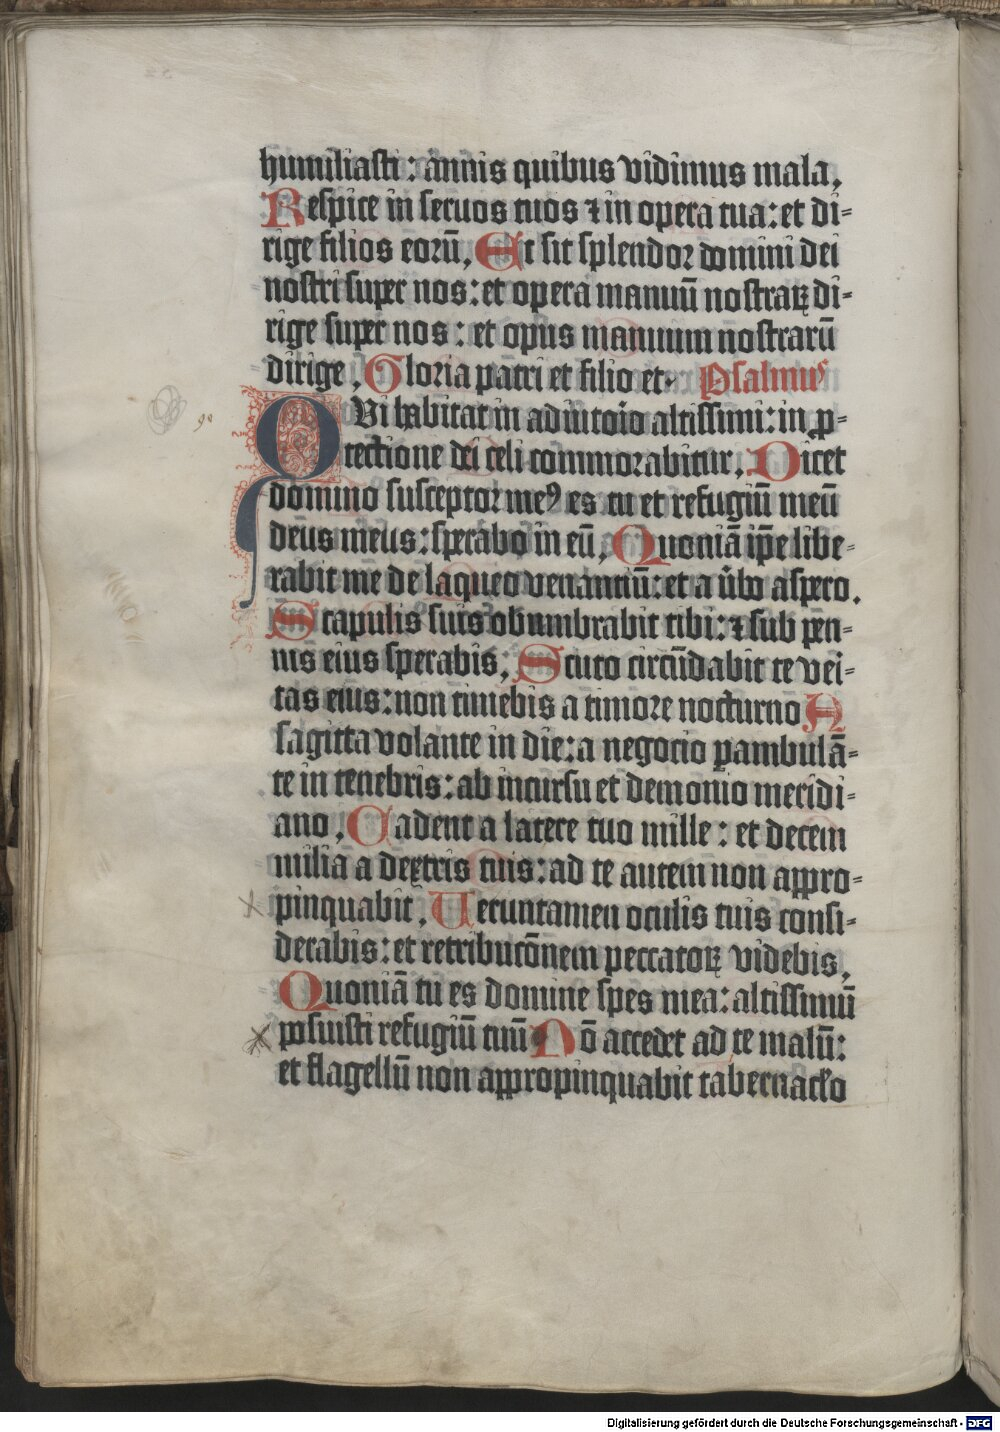 humiliasti: annis quibus vidimus mala.
Respice in seruos tuos ⁊ in opera tua: et di-
rige filios eorū. Et sit splendor domini dei
nostri super nos: et opera manuū nostraꝝ di-
rige super nos: et opus manuum nostrarū
dirige. Gloria patri et filio et. Psalmus
90 QVi habitat in adiutoio altissimi: in ꝓ-
tectione dei celi commorabitur. Dicet
domino susceptor meꝰ es tu et refugiū meū
deus meus: sperabo in eū. Quoniā ip̄e libe-
rabit me de laqueo venantiū: et a ūbo aspero.
Scapulis suis obumbrabit tibi: ⁊ sub pen-
nis eius sperabis. Scuto circūdabit te vei-
tas eius: non timebis a timore nocturno A
sagitta volante in die: a negocio ꝑambulā-
te in tenebris: ab incursu et demonio meridi-
ano. Cadent a latere tuo mille: et decem
milia a dextris tuis: ad te autem non appro-
pinquabit. Ueruntamen oculis tuis consi-
derabis: et retributōnem peccatoꝝ videbis.
Quoniā tu es domine spes mea: altissimū
posuisti refugiū tuū Nō accedet ad te malū:
et flagellū non appropinquabit tabernaclo
Digitalisierung gefördert durch die Deutsche Forschungsgemeinschaft - DFG